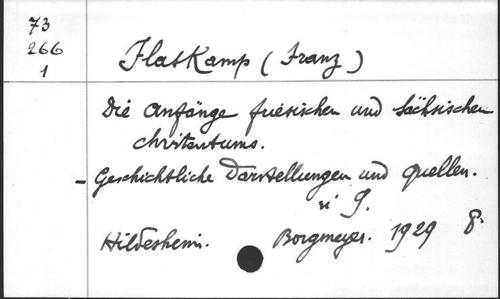 73
266
1
Flaskamp (Franz)
Die Anfänge friesischen und sächsischen
christentums.
- Geschichtliche Darstellungen und quellen.
n° 9.
Hildesheim. Borgmeyer. 1929 8°